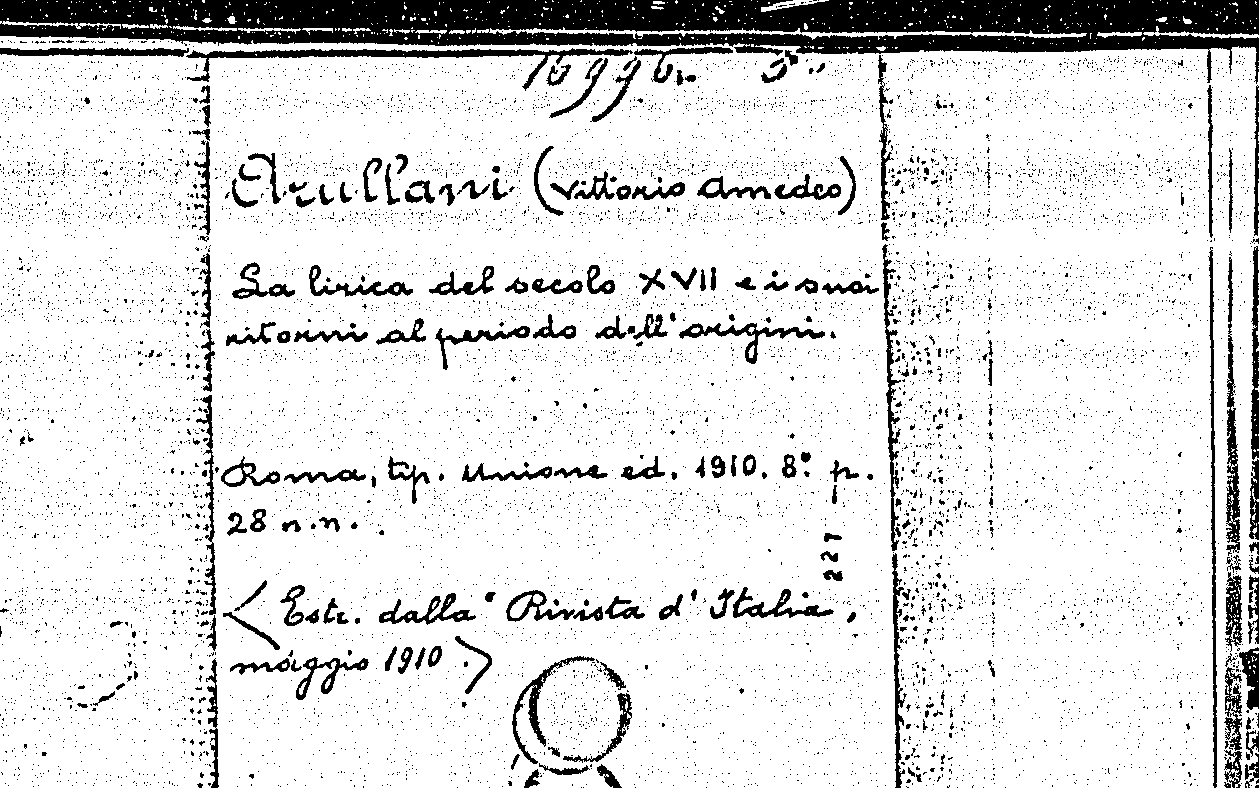 Arullani (Vittorio Amedeo)
La lirica del secolo XVII e i suoi
ritorni al periodo dell'origini.
Roma, tip. Unione ed. 1910. 8°. p.
28 n.n.
227
< Estr. dalla "Rivista d'Italia,
maggio 1910.>